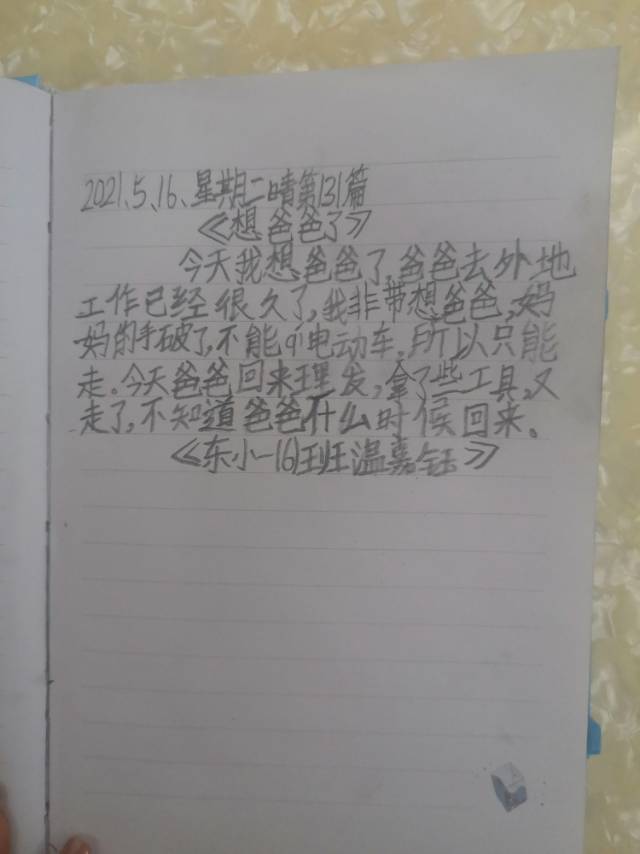 2021、5、16、星期二晴第131篇
《想爸爸了》
今天我想爸爸了,爸爸去外地
工作已经很久了,我非带想爸爸,妈
妈的手破了,不能qí电动车,所以只能
走。今天爸爸回来理发,拿了些工具,又
走了,不知道爸爸什么时候回来。
《东小一(6)班温嘉钰》